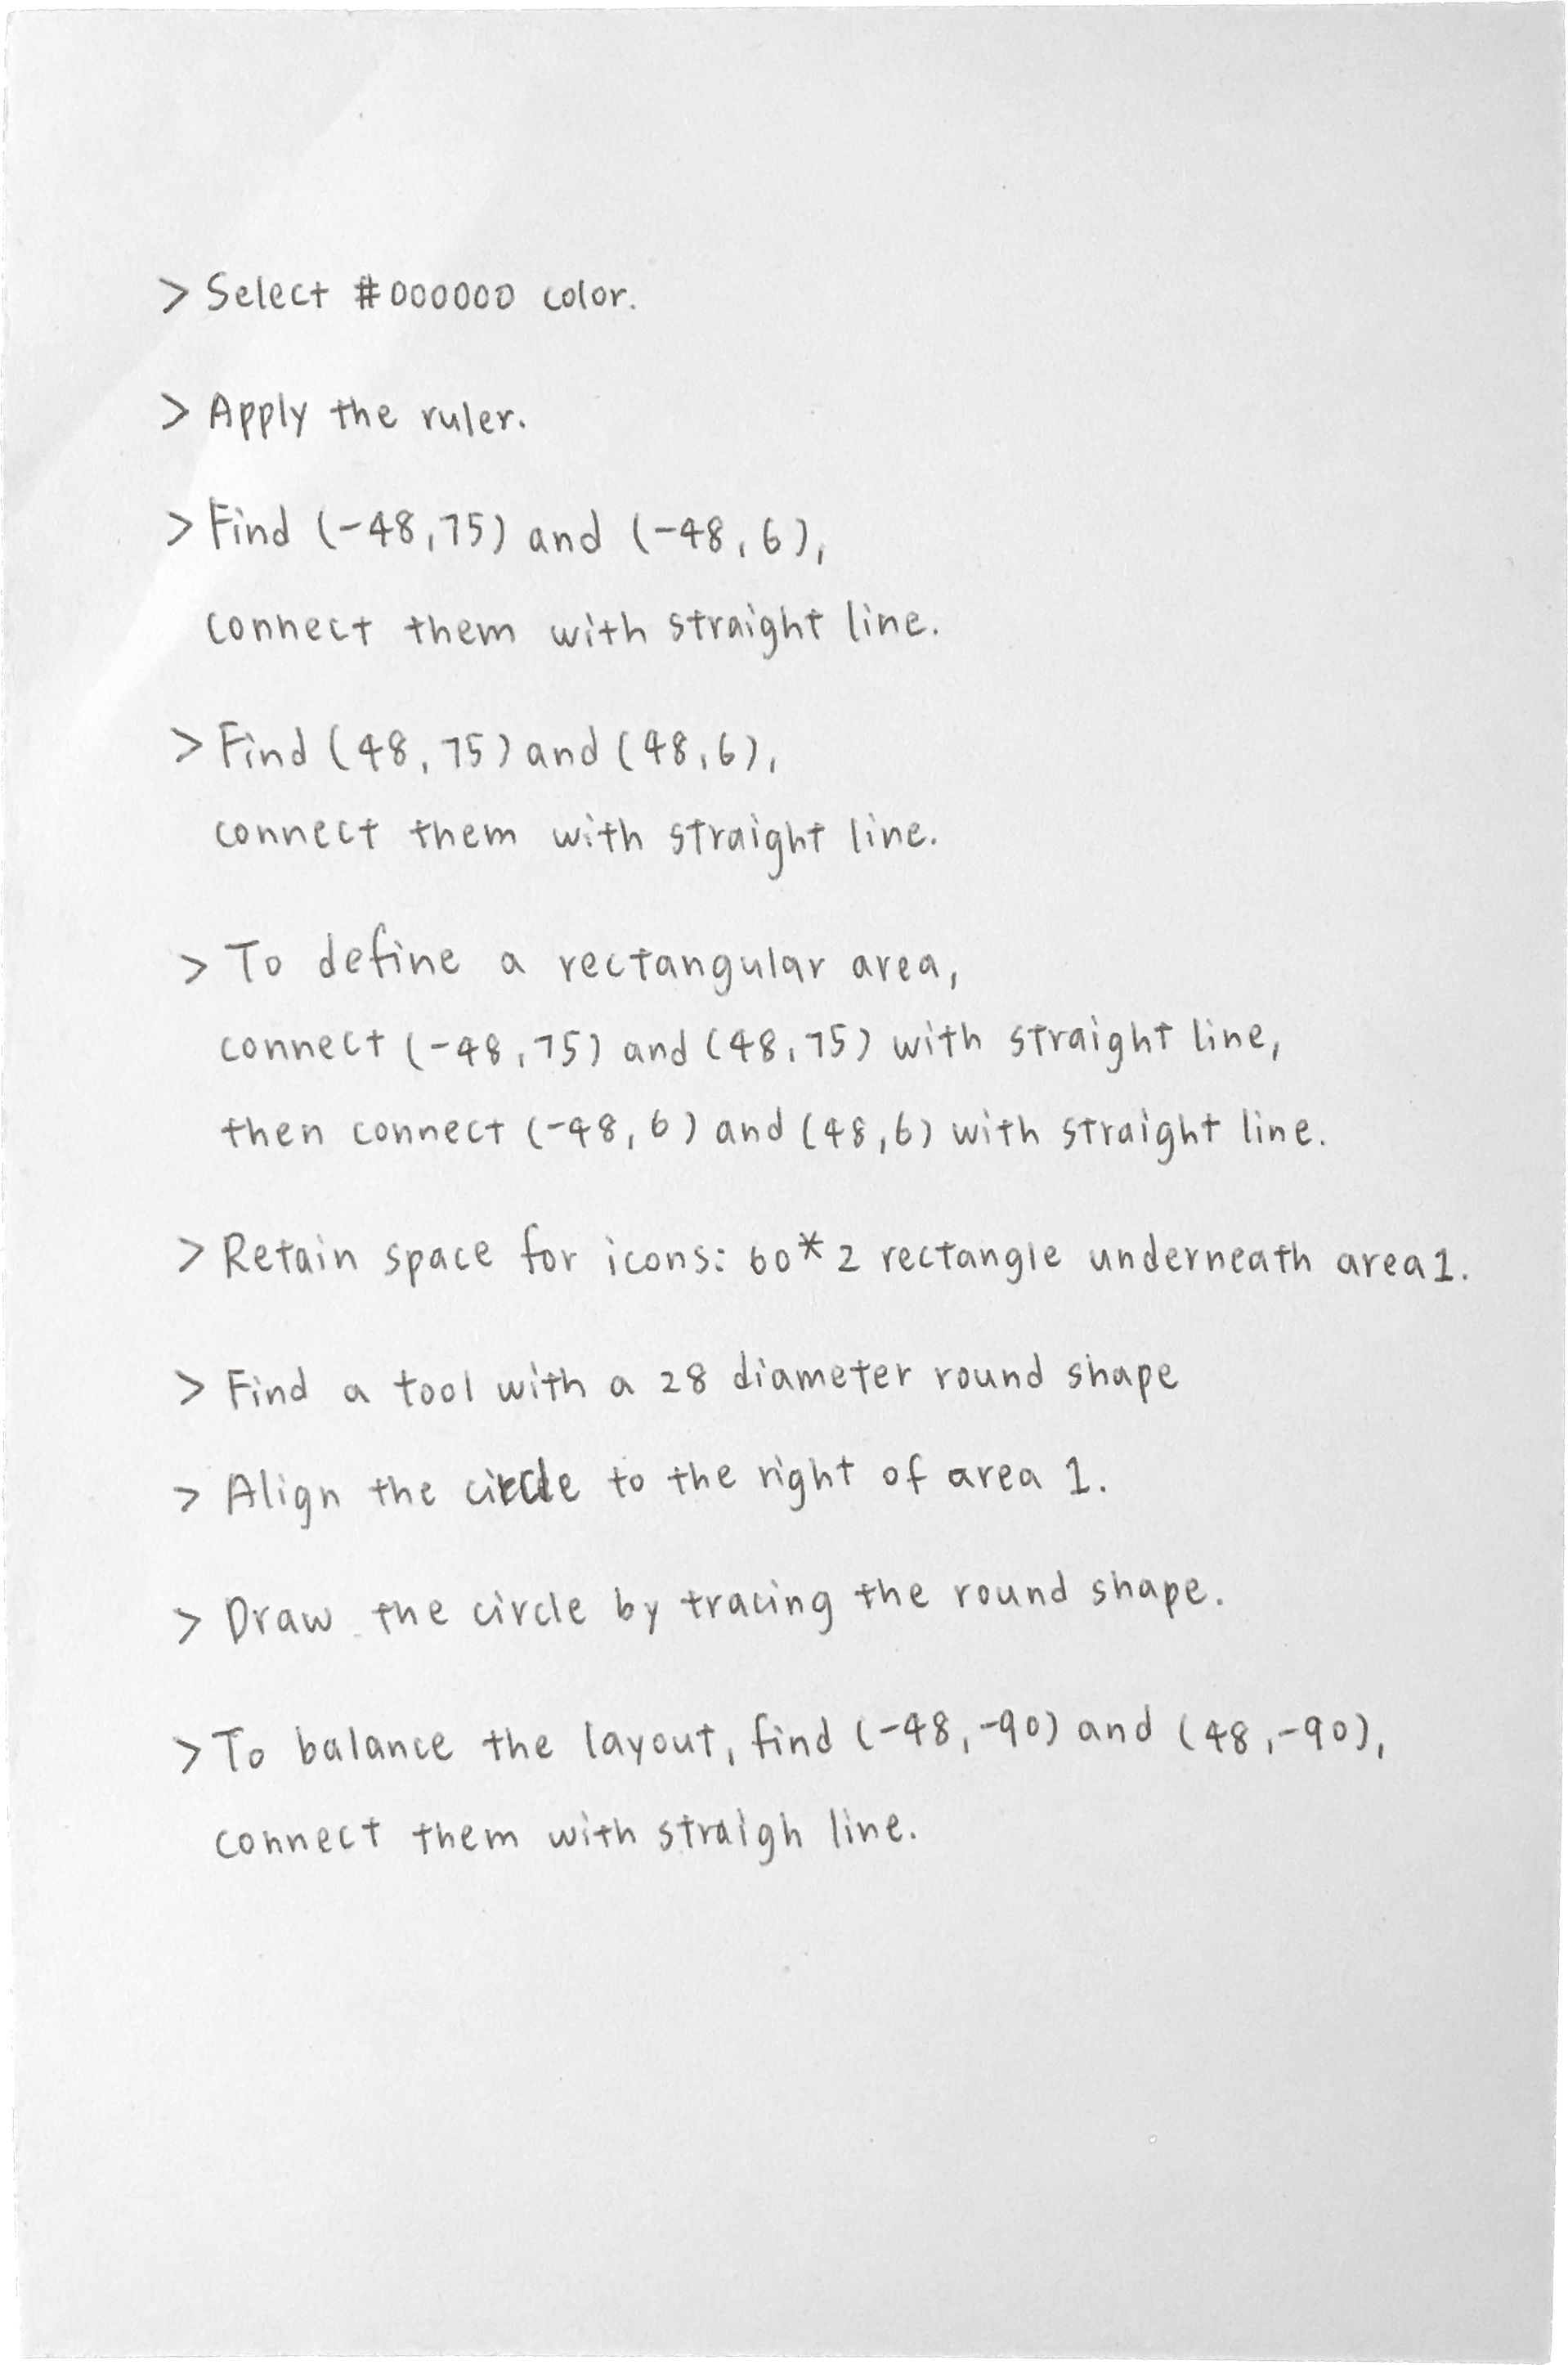 > Select #000000 color.
> Apply the ruler.
> Find (-48,75) and (-48,6),
connect them with straight line.
> Find (48,75) and (48,6),
connect them with straight line.
> To define a rectangular area,
connect (-48,75) and (48,75) with straight line,
then connect (-48,6) and (48,6) with straight line.
> Retain space for icons: 60*2 rectangle underneath area1.
> Find a tool with a 28 diameter round shape
> Align the circle to the right of area 1.
> Draw the circle by tracing the round shape.
> To balance the layout, find (-48,-90) and (48,-90),
connect them with straigh line.